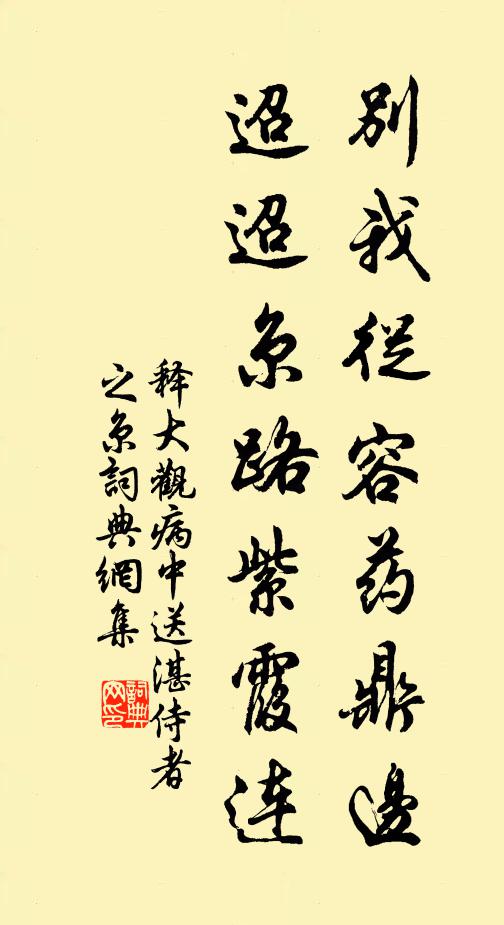 别我從容药鼎邊
迢迢京路紫霞連
释大觀病中送湛侍者
之京詞典網集
詞典网印